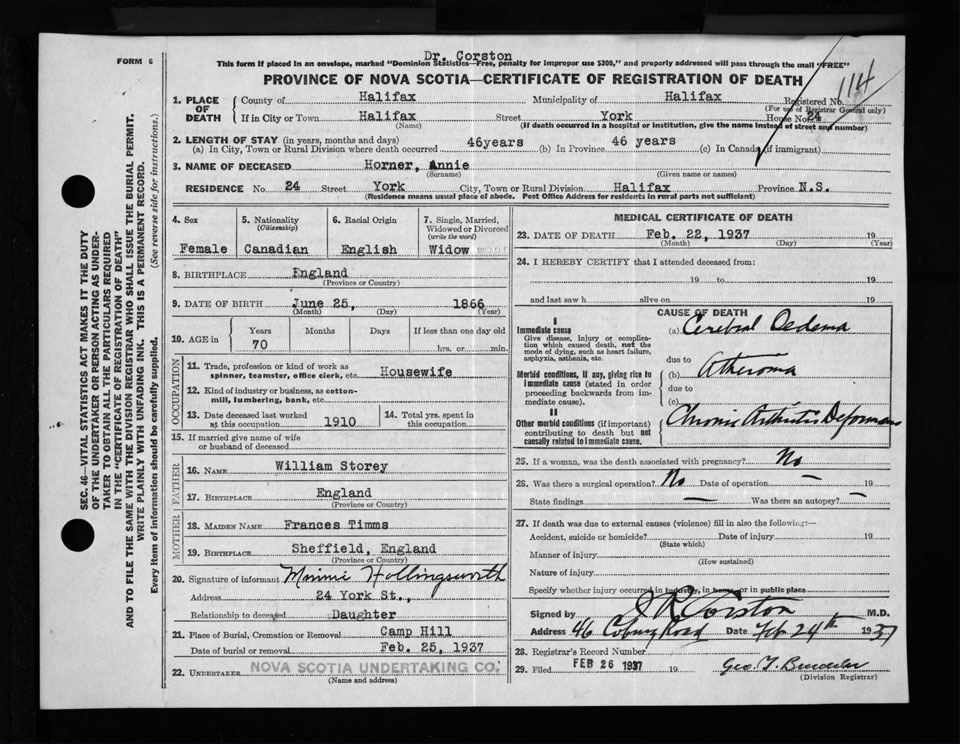 FORM 6
Dr. Corston
This form if placed in an envelope, marked "Dominion Statistics—Free, penalty for improper use $300," and properly addressed will pass through the mail "FREE"
PROVINCE OF NOVA SCOTIA—CERTIFICATE OF REGISTRATION OF DEATH
114
1. PLACE OF DEATH
County of Halifax Municipality of Halifax Registered No.
(For use of Registrar General only)
If in City or Town Halifax Street York House No. 24
(Name) (If death occurred in a hospital or institution, give the name instead of street and number)
2. LENGTH OF STAY (in years, months and days)
(a) In City, Town or Rural Division where death occurred 46years (b) In Province 46 years (c) In Canada (if immigrant)
3. NAME OF DECEASED Horner, Annie
(Surname) (Given name or names)
RESIDENCE No. 24 Street York City, Town or Rural Division Halifax Province N.S.
(Residence means usual place of abode. Post Office Address for residents in rural parts not sufficient)
4. Sex 5. Nationality 6. Racial Origin 7. Single, Married, Widowed or Divorced
(Citizenship) (write the word)
Female Canadian English Widow
8. BIRTHPLACE England
(Province or Country)
9. DATE OF BIRTH June 25, 1866
(Month) (Day) (Year)
10. AGE in Years Months Days If less than one day old
70 hrs. or min.
OCCUPATION
11. Trade, profession or kind of work as
spinner, teamster, office clerk, etc. Housewife
12. Kind of industry or business, as cotton-
mill, lumbering, bank, etc.
13. Date deceased last worked
at this occupation 1910
14. Total yrs. spent in
this occupation
15. If married give name of wife
or husband of deceased
FATHER
16. NAME William Storey
17. BIRTHPLACE England
(Province or Country)
MOTHER
18. MAIDEN NAME Frances Timms
19. BIRTHPLACE Sheffield, England
(Province or Country)
20. Signature of informant Minnie Hollingsworth
Address 24 York St.,
Relationship to deceased Daughter
21. Place of Burial, Cremation or Removal Camp Hill
Date of burial or removal Feb. 25, 1937
22. UNDERTAKER NOVA SCOTIA UNDERTAKING CO.
(Name and address)
MEDICAL CERTIFICATE OF DEATH
23. DATE OF DEATH Feb. 22, 1937 19
(Month) (Day) (Year)
24. I HEREBY CERTIFY that I attended deceased from:
19 to 19
and last saw h alive on 19
CAUSE OF DEATH
I
Immediate cause
Give disease, injury or complica-
tion which caused death, not the
mode of dying, such as heart failure,
asphyxia, asthenia, etc.
(a) Cerebral Oedema
due to
Morbid conditions, if any, giving rise to
immediate cause (stated in order
proceeding backwards from im-
mediate cause).
(b) Atheroma
due to
(c)
II
Other morbid conditions (if important)
contributing to death but not
causally related to immediate cause.
Chronic Arthritis Deformans
25. If a woman, was the death associated with pregnancy? No
26. Was there a surgical operation? No Date of operation —
State findings — Was there an autopsy? —
27. If death was due to external causes (violence) fill in also the following:—
Accident, suicide or homicide? Date of injury 19
(State which)
Manner of injury
(How sustained)
Nature of injury
Specify whether injury occurred in industry, in home, or in public place
Signed by J R Corston M.D.
Address 46 Coburg Road Date Feb. 24th 1937
28. Registrar's Record Number
29. Filed FEB 26 1937 19
(Division Registrar)
SEC. 46—VITAL STATISTICS ACT MAKES IT THE DUTY
OF THE UNDERTAKER OR PERSON ACTING AS UNDER-
TAKER TO OBTAIN ALL THE PARTICULARS REQUIRED
IN THE "CERTIFICATE OF REGISTRATION OF DEATH"
AND TO FILE THE SAME WITH THE DIVISION REGISTRAR WHO SHALL ISSUE THE BURIAL PERMIT.
WRITE PLAINLY WITH UNFADING INK. THIS IS A PERMANENT RECORD.
Every item of information should be carefully supplied. (See reverse side for instructions.)